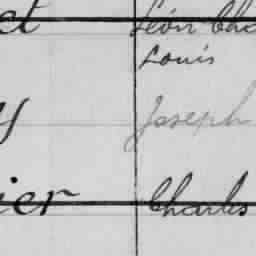 ct Léon Cha
Louis
y Joseph
ier Charles